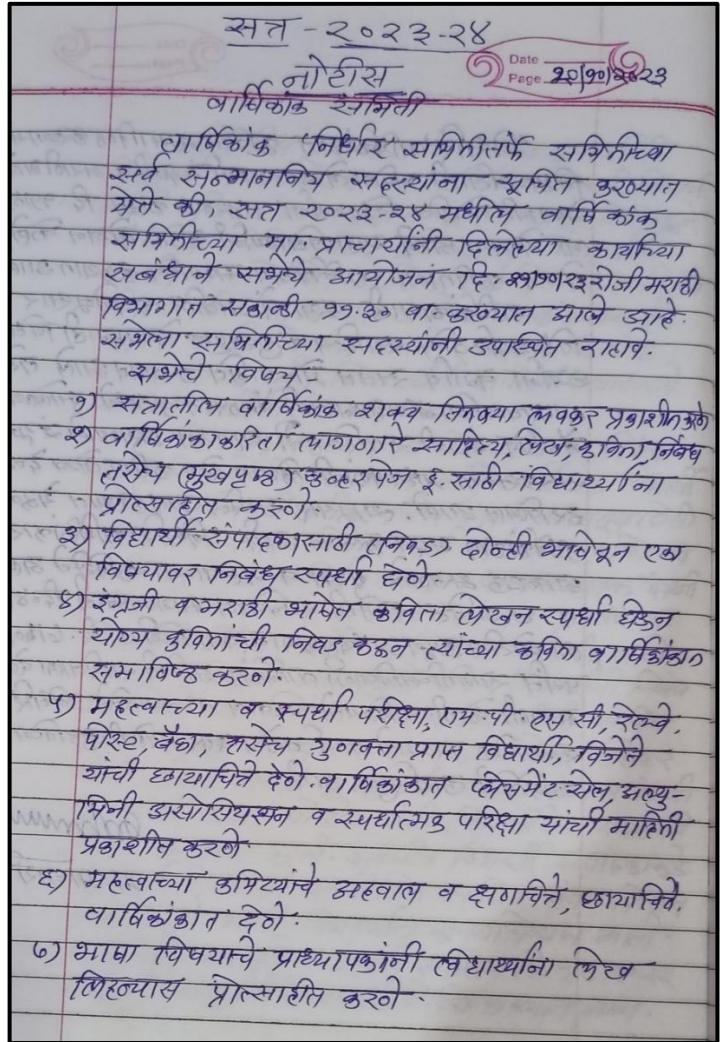 सत्र - २०२३-२४
Date
नोटीस
Page २०/१०/२०२३
वार्षिकांक समिती
वार्षिकांक निर्धार समितीतर्फे समितीच्या
सर्व सन्माननिय सदस्यांना सूचित करण्यात
येते की, सत्र २०२३-२४ मधील वार्षिकांक
समितीच्या मा. प्राचार्यांनी दिलेल्या कार्याच्या
संबंधाने सभेचे आयोजन दि. २१/१०/२३ रोजी मराठी
विभागात सकाळी ११.३० वा. करण्यात आले आहे.
सभेला समितीच्या सदस्यांनी उपस्थित राहावे.
सभेचे विषय -
१) सत्रातील वार्षिकांक शक्य तितक्या लवकर प्रकाशीत करणे
२) वार्षिकांकाकरिता लागणारे साहित्य, लेख, कविता, निबंध
तसेच (मुखपृष्ठ) कव्हर पेज इ. साठी विद्यार्थ्यांना
प्रोत्साहीत करणे.
३) विद्यार्थी संपादकासाठी (निवड) दोन्ही भाषेतून एका
विषयावर निबंध स्पर्धा घेणे.
४) इंग्रजी व मराठी भाषेत कविता लेखन स्पर्धा घेऊन
योग्य कवितांची निवड करून त्यांच्या कविता वार्षिकांकात
समाविष्ठ करणे.
५) महत्वाच्या व स्पर्धा परीक्षा, एम.पी.एस.सी, रेल्वे,
पोस्ट, बँका, तसेच गुणवत्ता प्राप्त विद्यार्थी, विजेते
यांची छायाचित्रे देणे. वार्षिकांकात प्लेसमेंट सेल, अल्यु-
मिनी असोसियशन व स्पर्धात्मक परिक्षा यांची माहिती
प्रकाशीत करणे
६) महत्वाच्या कमिट्यांचे अहवाल व क्षणचित्रे, छायाचित्रे.
वार्षिकांकात देणे.
७) भाषा विषयाचे प्राध्यापकांनी विद्यार्थ्यांना लेख
लिहण्यास प्रोत्साहीत करणे.